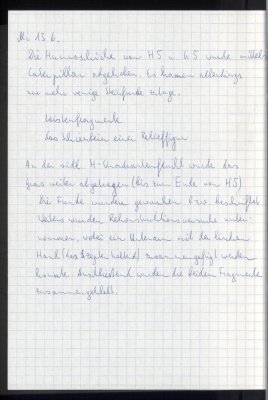 Mi 13.6.
Die Humusschichte von H5 u. G5 wurde mittels
Caterpillar abgehoben. Es kamen allerdings
nur mehr wenige Steinfunde zutage.
Leistenfragmente
das Schienbein einer Relieffigur
An der südl. H- wurde das
Gras weiter abgetragen (bis zum Ende von H5)
Die Funde wurden gewaschen bzw. beschriftet
Weiters wurden Rekonstruktionsversuche unter-
nommen, wobei ein Unterarm mit der linken
Hand (das Szepter haltend) zusammengefügt werden
konnte. Anschließend wurden die beiden Fragmente
zusammengeklebt.